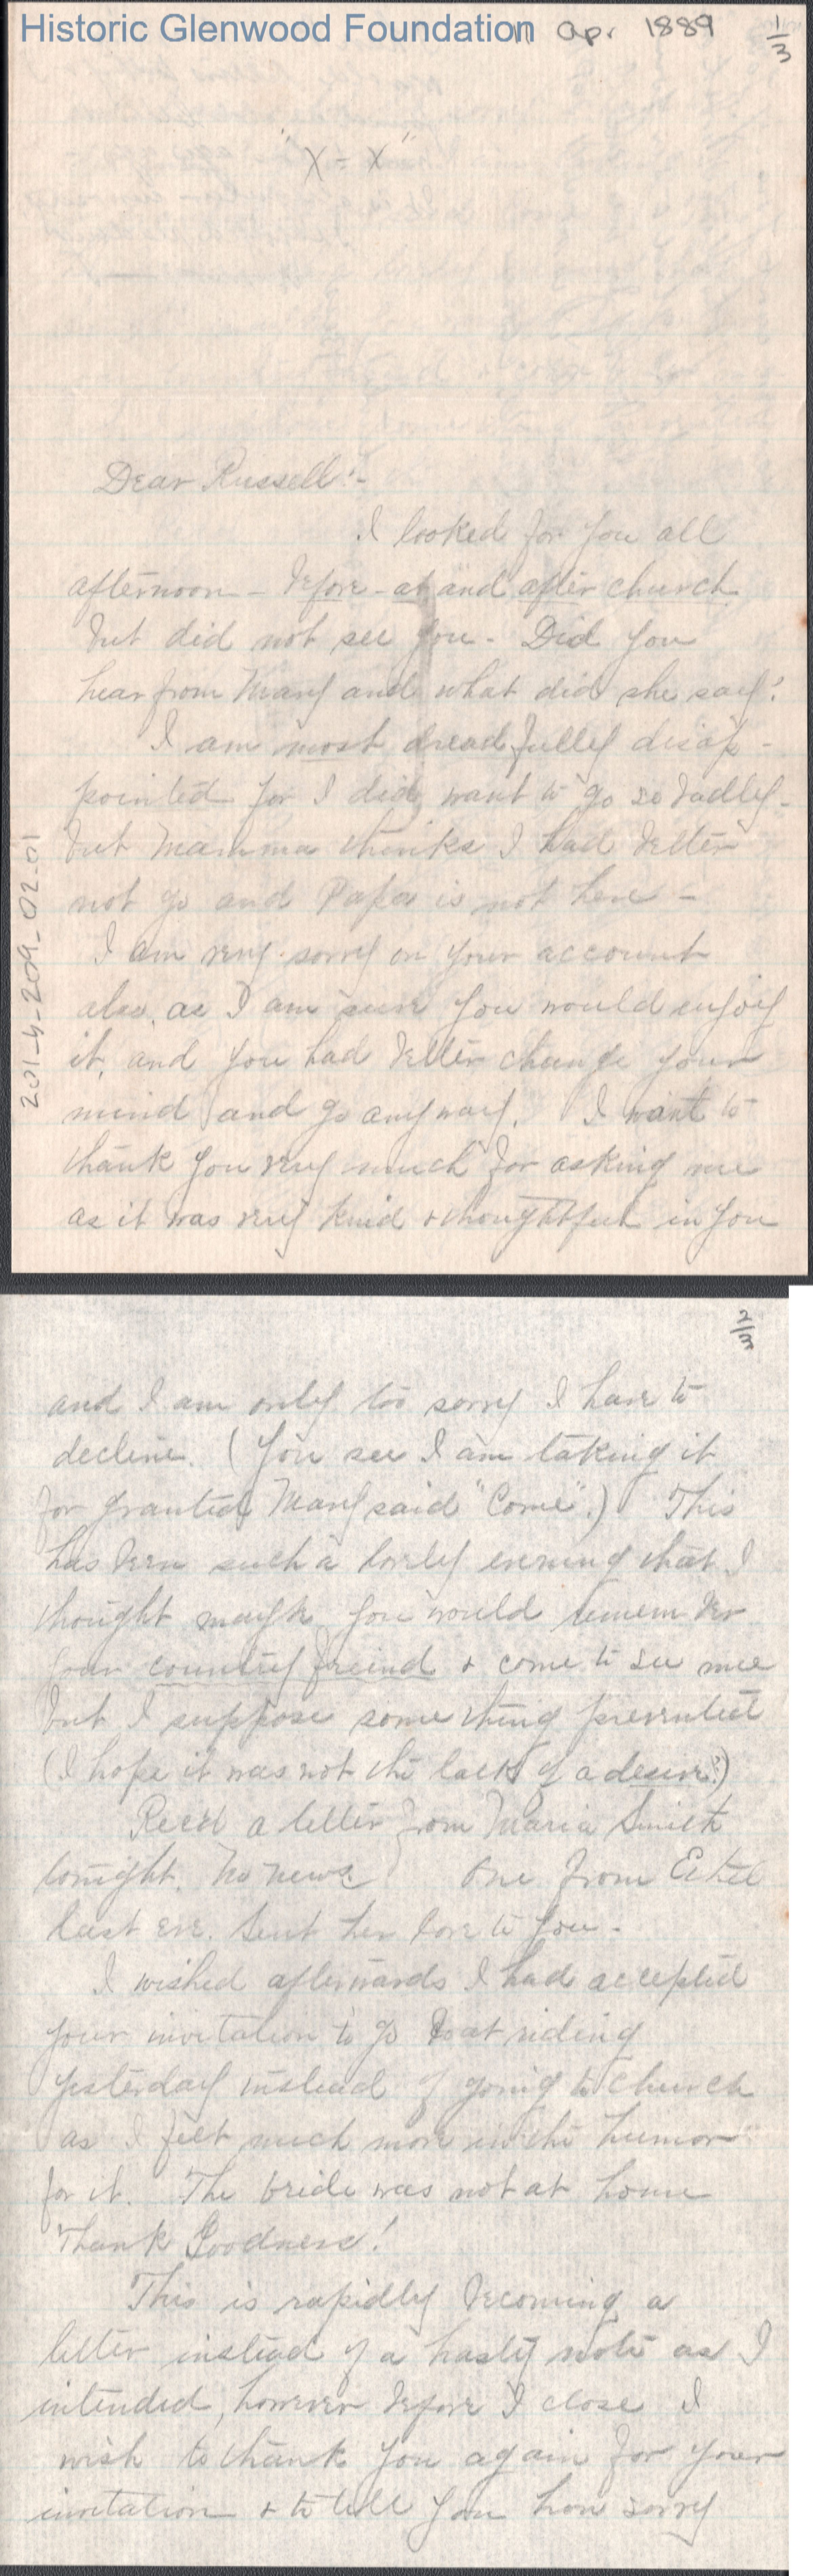 Historic Glenwood Foundation
Apr 1889
1/3
"X = X"
Dear Russell:-
I looked for you all
afternoon - before - at and after church
but did not see you - Did you
hear from Mary and what did she say?
I am most dreadfully disap-
pointed for I did want to go so badly -
but Mamma thinks I had better
not go and Papa is not here -
I am very sorry on your account
also, as I am sure you would enjoy
it, and you had better change your
mind and go anyway. I want to
thank you very much for asking me
as it was very kind + thoughtful in you
201-4-209-02-01
2/3
and I am only too sorry I have to
decline. (You see I am taking it
for granted Mary said "Come".) This
has been such a lovely evening that I
thought maybe you would remember
your country freind + come to see me
but I suppose something prevented
(I hope it was not the lack of a desire?)
Rec'd a letter from Maria Smith
tonight. No news. One from Ethel
last eve. Sent her love to you -
I wished afterwards I had accepted
your invitation to go boat riding
yesterday instead of going to church
as I felt much more in the humor
for it. The bride was not at home
Thank Goodness!
This is rapidly becoming a
letter instead of a hasty note as I
intended, however before I close I
wish to thank you again for your
invitation + to tell you how sorry